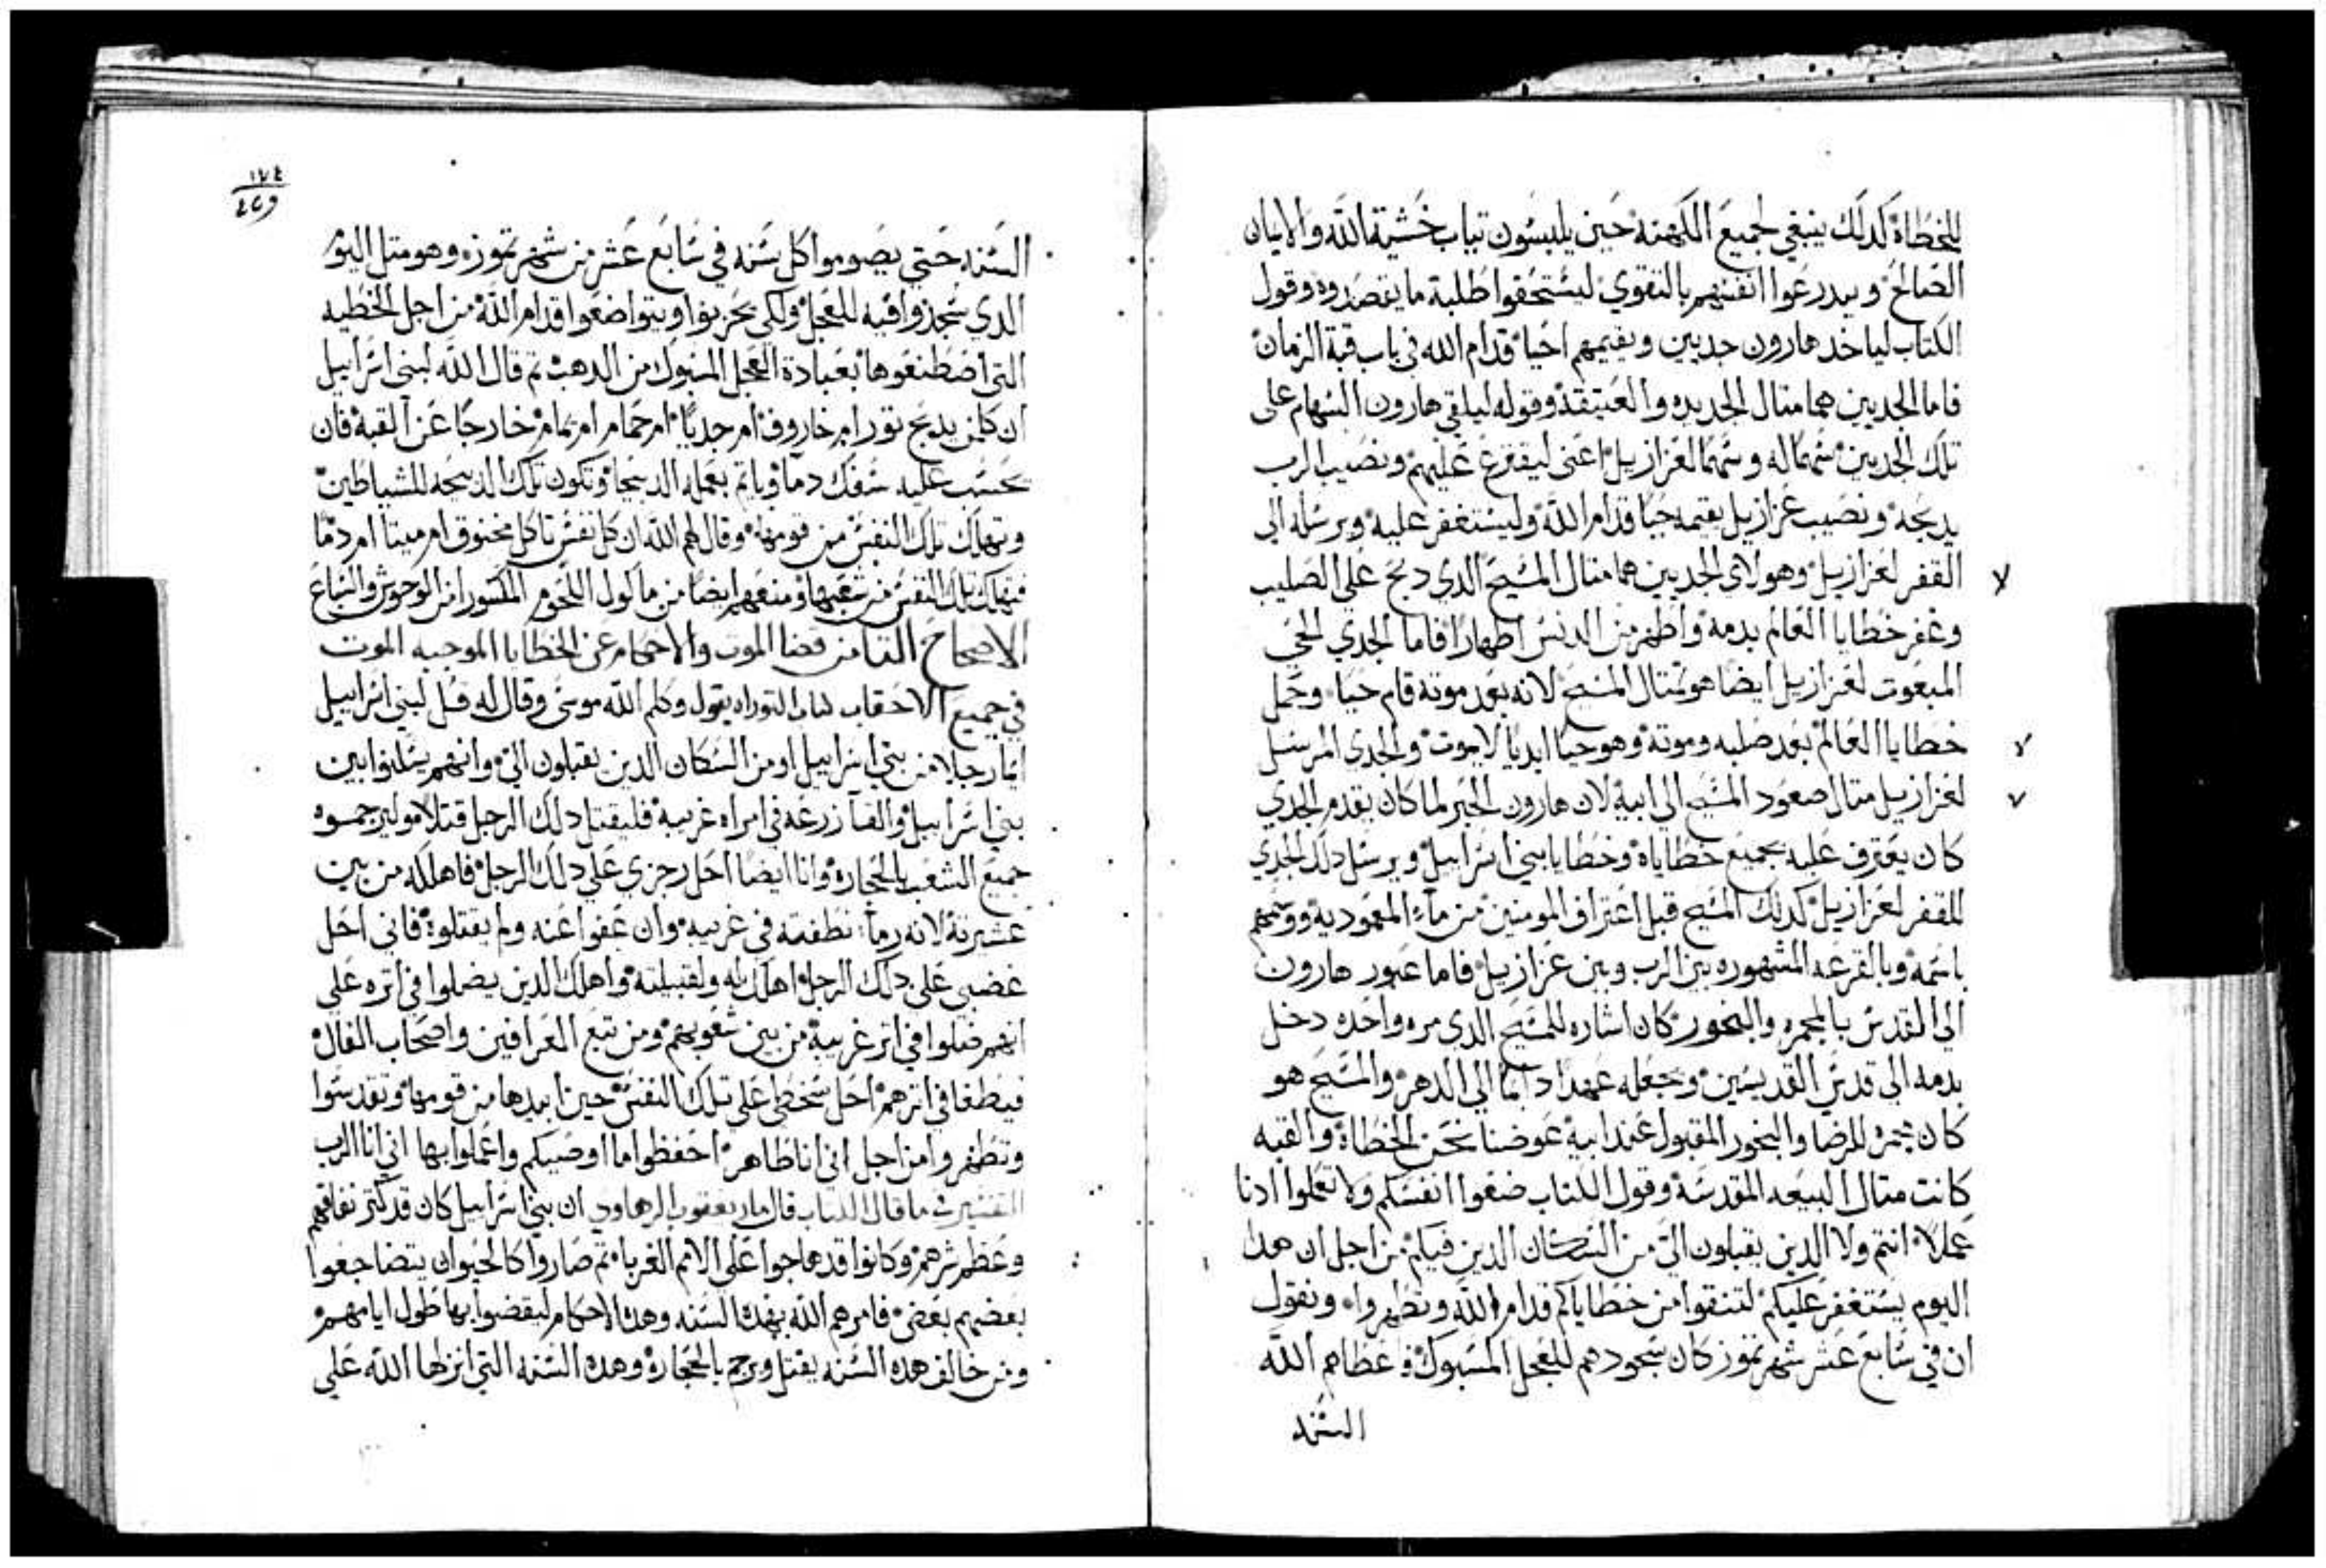 للخطاة كدلك ينبغي لجميع الكهنه حين يلبسون تياب خشية الله والايمان
الصالح ويدرعوا انفسهم بالتقوي ليستحقوا طلبة ما يقصدوه وقول
الكتاب لياخد هارون جديين ويقيمهم احيا قدام الله في باب قبة الزمان
فاما الجديين هما متال الجديده والعتيقة وقوله ليلقي هارون السهام على
تلك الجديين سهما له وسهما لعزازيل اعني ليقترع عليهم ونصيب الرب
يدبحه ونصيب عزازيل يقيمه حيا قدام الله وليستغفر عليه ويرسله الي
القفر لعزازيل وهولاي الجديين هما متال المسيح الدي دبح على الصليب
وغفر خطايا العالم بدمه واطهر من الدنس اطهارا فاما الجدي الحي
المبعوت لعزازيل ايضا هو متال المسيح لانه بعد موته قام حيا وحمل
خطايا العالم بعد صلبه وموته وهو حيا ابديا لا يموت والجدي المرسل
لعزازيل متال صعود المسيح الي ابيه لان هارون الحبر لما كان يقدم الجدي
كان يعترف عليه بجميع خطاياه وخطايا بني اسراييل ويرسل دلك الجدي
للقفر لعزازيل كدلك المسيح قبل اعتراف المومنين من ماء المعمودية ووسمهم
باسمه وبالقرعه المشهوره بين الرب وبين عزازيل فاما عبور هارون
الي المقدس بالمجمره والبخور كان اشاره للمسيح الدي مره واحده دخل
بدمه الي قدس القديسين وجعله عهدا دايما الي الدهر والمسيح هو
كان مجمرة الرضا والبخور المقبول عند ابيه عوضنا نحن الخطاة والقبه
كانت متال البيعه المقدسة وقول الكتاب ضعوا انفسكم ولا تعملوا ادنا
عملا انتم ولا الدين يقبلون الي من السكان الدين فيكم من اجل ان هدا
اليوم يستغفر عليكم لتنقوا من خطاياكم قدام الله وتطهروا ونقول
ان في سابع عشر شهر تموز كان سجودهم للعجل المسبوك فاعطاهم الله
السنه
١٧٤
السنه حتي يصوموا كل سنه في سابع عشر من شهر تموز وهو متل اليوم
الدي سجدوا فيه للعجل ولكي يحزنوا ويتواضعوا قدام الله من اجل الخطيه
التي اصطنعوها بعبادة العجل المسبوك من الدهب تم قال الله لبني اسراييل
ان كلمن يدبح تور ام خاروف ام جديا ام حمام ام يمام خارجا عن القبة فان
يحسب عليه سفك دما وياتم بعمله الدبيحا وتكون تلك الدبيحه للشياطين
وتهلك تلك النفس من قومها وقال لهم الله ان كل نفس تاكل مخنوق ام ميتا ام دما
فتهلك تلك النفس من شعبها ومنعهم ايضا من ماكول اللحوم المكسورا من الوحوش والسباع
الاصحاح التامن قضا الموت والاحكام عن الخطايا الموجبه الموت
في جميع الاحقاب كتاب التوراه يقول وكلم الله موسى وقال له قل لبني اسراييل
ايما رجلا من بني اسراييل او من السكان الدين يقبلون الي وانهم يسكنوا بين
بني اسراييل والقا زرعه في امراه غريبة فليقتل دلك الرجل قتلا وليرجموه
جميع الشعب بالحجاره وانا ايضا احل رجزي علي دلك الرجل فاهلكه من بين
عشيرته لانه رما نطفته في غريبه وان عفوا عنه ولم يقتلوه فاني احل
غضبي علي دلك الرجل اهلك له ولقبيلته واهلك الدين يضلوا في اتره علي
انهم ضلوا في اتر غريبة من بين شعوبهم ومن تبع العرافين واصحاب الفال
فيطغا في اترهم احل سخطي علي تلك النفس حين ابيدها من قومها وتقدسوا
وتطهروا من اجل اني انا طاهر احفظوا ما اوصيكم واعملوا بها اني انا الرب
التفسير ما قال الكتاب قال مار يعقوب الرهاوي ان بني اسراييل كان قد كتر نفاقهم
وعظم شرهم وكانوا قد هاجوا علي الامم الغربا تم صاروا كالحيوان يتضاجعوا
بعضهم بعض فامرهم الله بهده السنه وهده الاحكام ليقضوا بها طول ايامهم
ومن خالف هده السنه يقتل ويرجم بالحجارة وهده السنه التي انزلها الله علي